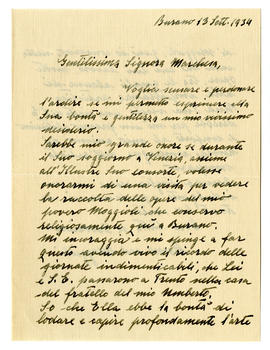 Burano 13 Sett. 1934
Gentilissima Signora Marchesa,
Voglia scusare e perdonare
l'ardire se mi permetto esprimere alla
Sua bontà e gentilezza un mio vivissimo
desiderio.
Sarebbe mio grande onore se durante
il Suo soggiorno a Venezia, assieme
all'Illustre Suo consorte, volesse
onorarmi di una visita per vedere
la raccolta delle opere del mio
povero Moggioli, che conservo
religiosamente qui a Burano.
Mi incoraggia e mi spinge a far
questo avendo vivo il ricordo delle
giornate indimenticabili, che Lei
e S. E. passarono a Trento nella casa
del fratello del mio Umberto.
So che Ella ebbe la bontà di
lodare e capire profondamente l'arte